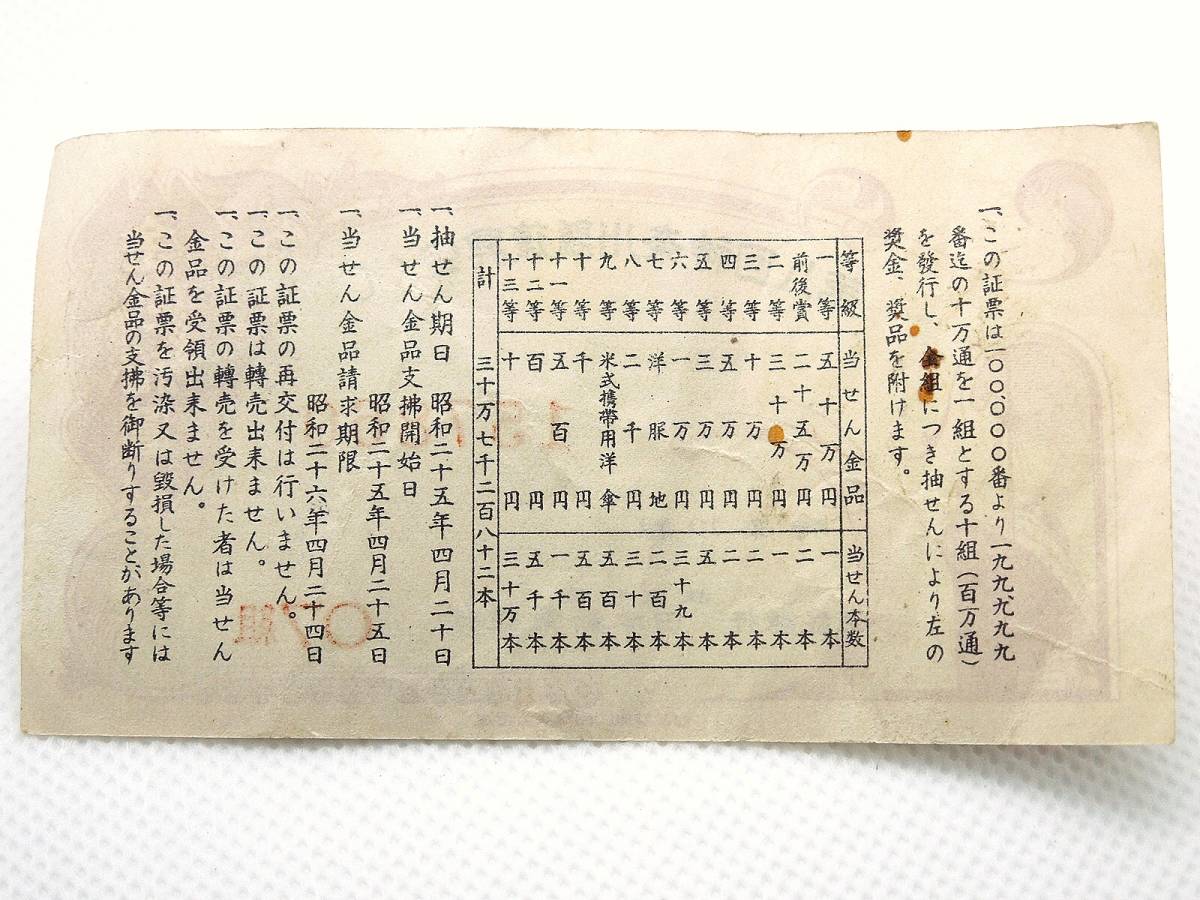 一、この証票は一〇〇、〇〇〇番より一九九、九九九
番迄の十万通を一組とする十組(百万通)
を發行し、全組につき抽せんにより左の
奨金、奨品を附けます。
等級 当せん金品 当せん本数
一等 五十万円 一本
前後賞 二十五万円 二本
二等 三十万円 一本
三等 十万円 二本
四等 五万円 二本
五等 三万円 五本
六等 一万円 三十九本
七等 洋服地 二百本
八等 二千円 三十本
九等 米式携帯用洋傘 五百本
十等 千円 五百本
十一等 五百円 一千本
十二等 百円 五千本
十三等 十円 三十万本
計 三十万七千二百八十二本
一、抽せん期日 昭和二十五年四月二十日
一、当せん金品支拂開始日
昭和二十五年四月二十五日
一、当せん金品請求期限
昭和二十六年四月二十四日
一、この証票の再交付は行いません。
一、この証票は轉売出来ません。
一、この証票の轉売を受けた者は当せん
金品を受領出来ません。
一、この証票を汚染又は毀損した場合等には
当せん金品の支拂を御断りすることがあります